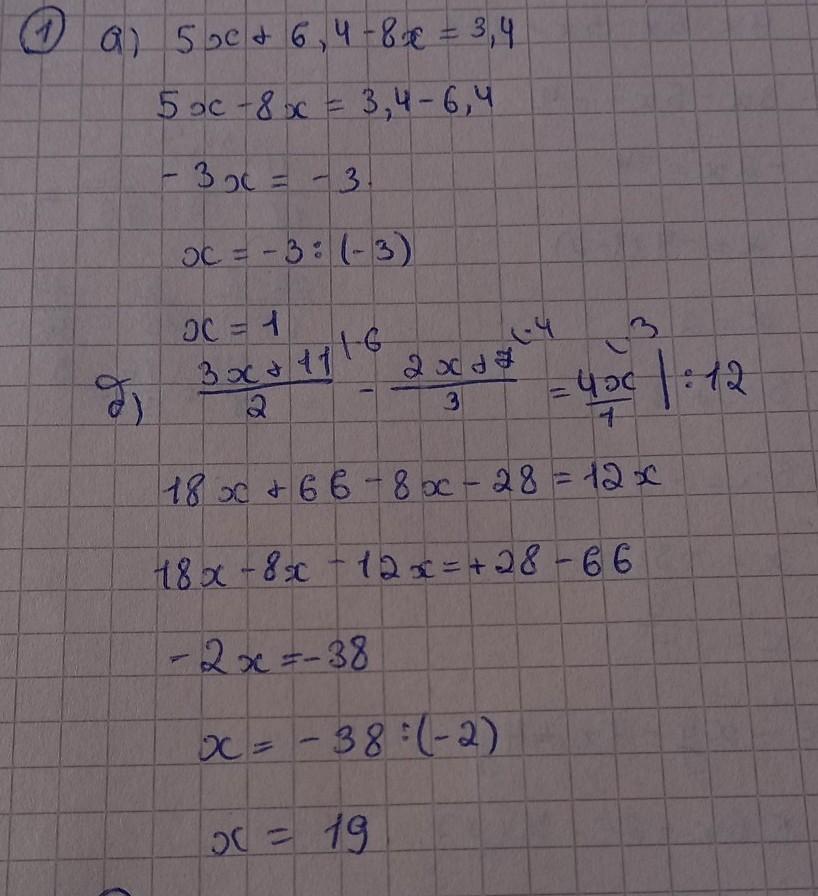 1 а) 5x + 6,4 - 8x = 3,4
5x - 8x = 3,4 - 6,4
-3x = -3
x = -3 : (-3)
x = 1
б) (3x + 11)/2 |·6 - (2x + 7)/3 (·4 = 4x/1 (3 | : 12
18x + 66 - 8x - 28 = 12x
18x - 8x - 12x = +28 - 66
-2x = -38
x = -38 : (-2)
x = 19